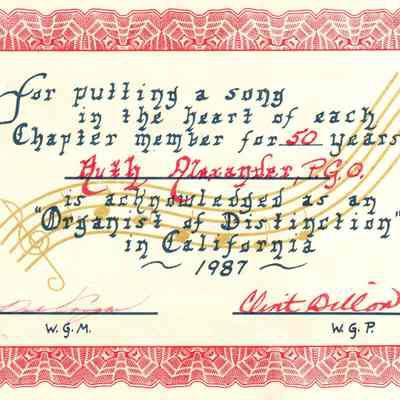 For putting a song
in the heart of each
Chapter member for 50 years
Ruth Alexander, P.G.O.
is acknowledged as an
"Organist of Distinction"
in California
~ 1987 ~
Clint Dillon
W.G.M. W.G.P.